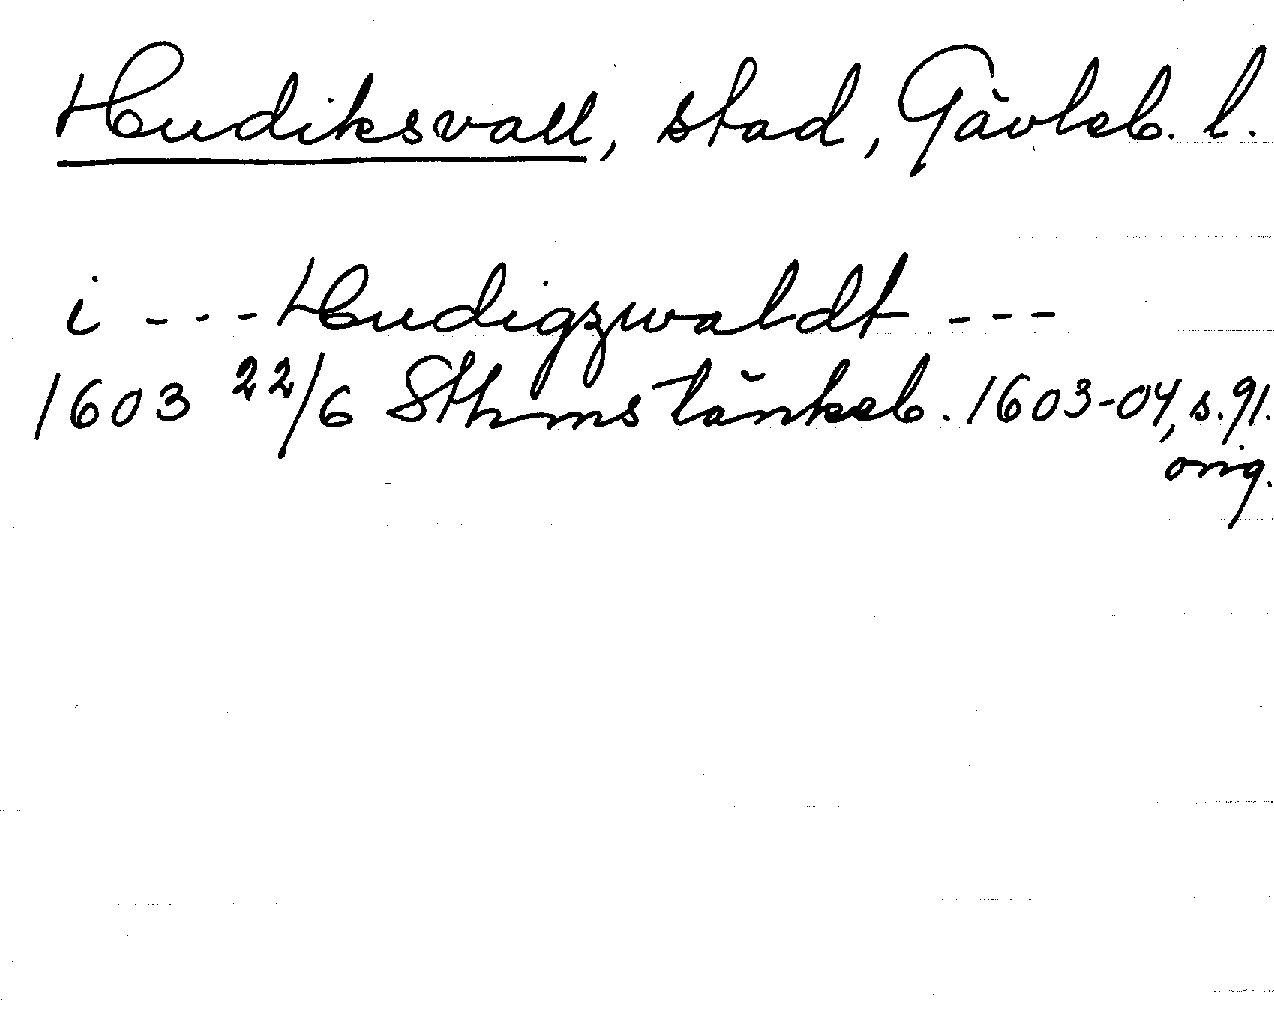 Hudiksvall, stad, Gävleb. l.
i --- Hudigzwaldt ---
1603 22/6 Sthms tänkeb. 1603-04, s. 91.
orig.